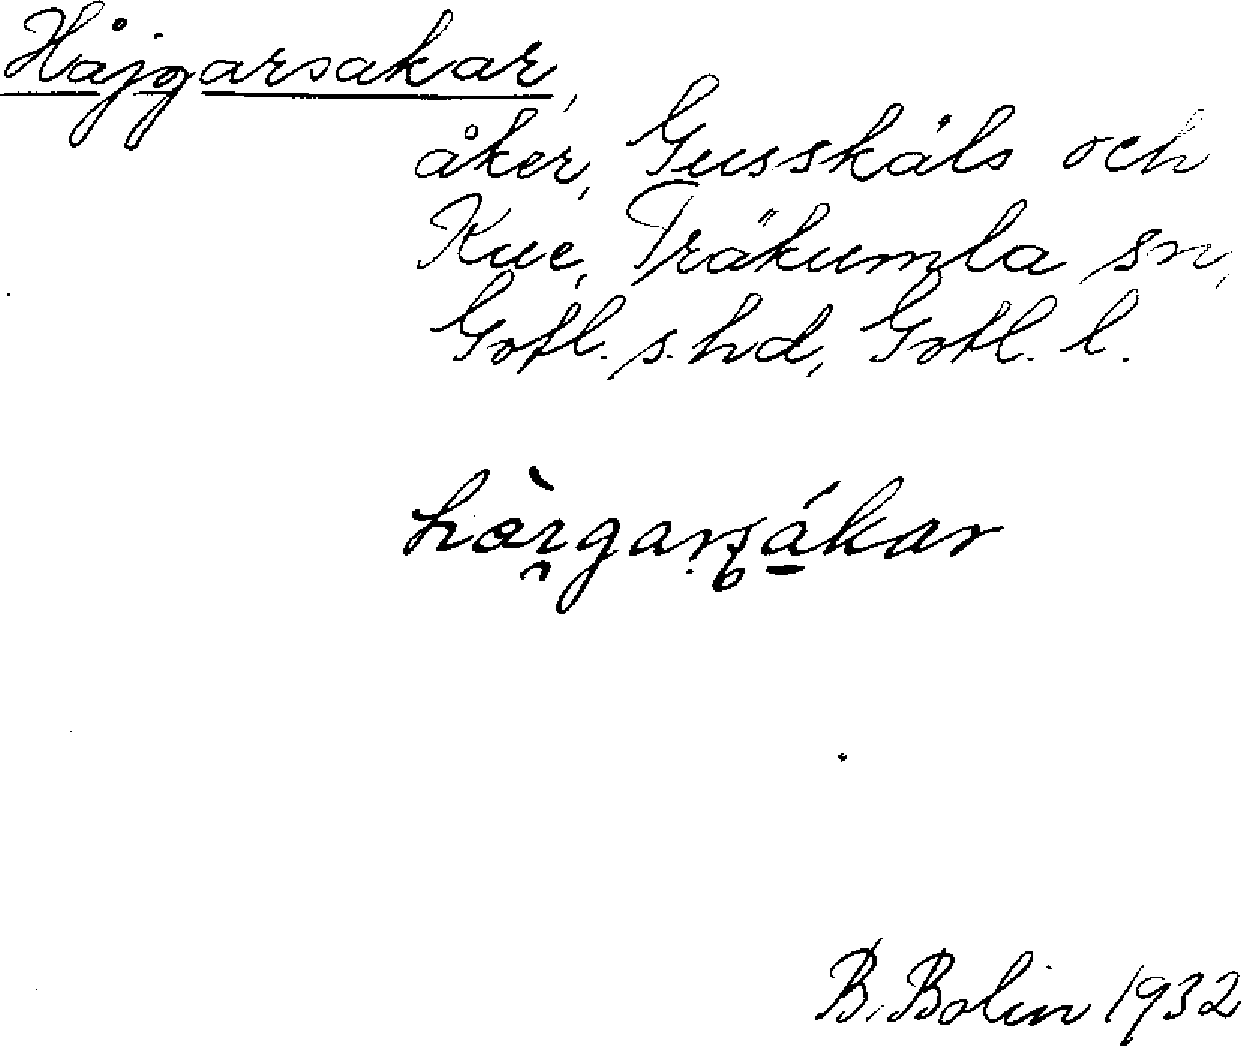 Håjgarsakar,
åker, Gusskåls och
Kue, Träkumla sn,
Gotl. s. hd, Gotl. l.
B. Bolin 1932